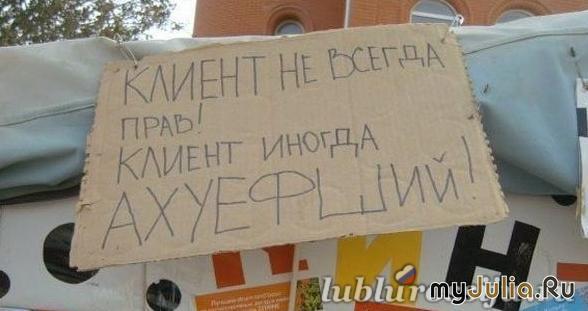 КЛИЕНТ НЕ ВСЕГДА
ПРАВ!
КЛИЕНТ ИНОГДА
АХУЕФШИЙ!
КИН
myJulia.Ru